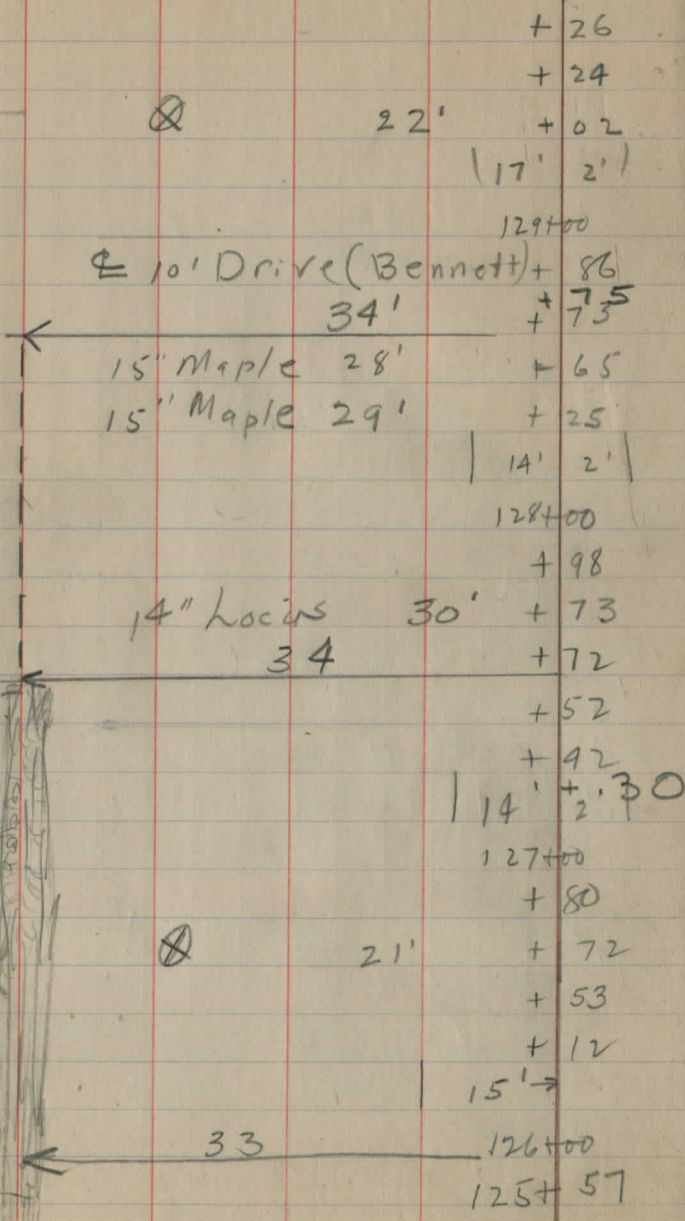 + 26
+ 24
22' + 02
17' 2'
129+00
℄ 10' Drive (Bennett) + 86
+ 75
34' + 73
15" Maple 28' + 65
15" Maple 29' + 25
14' 2'
128+00
+ 98
14" Locus 30' + 73
34 + 72
+ 52
+ 42
+ 30
14' 2'
127+00
+ 80
21' + 72
+ 53
+ 12
15'
33 126+00
125+ 57